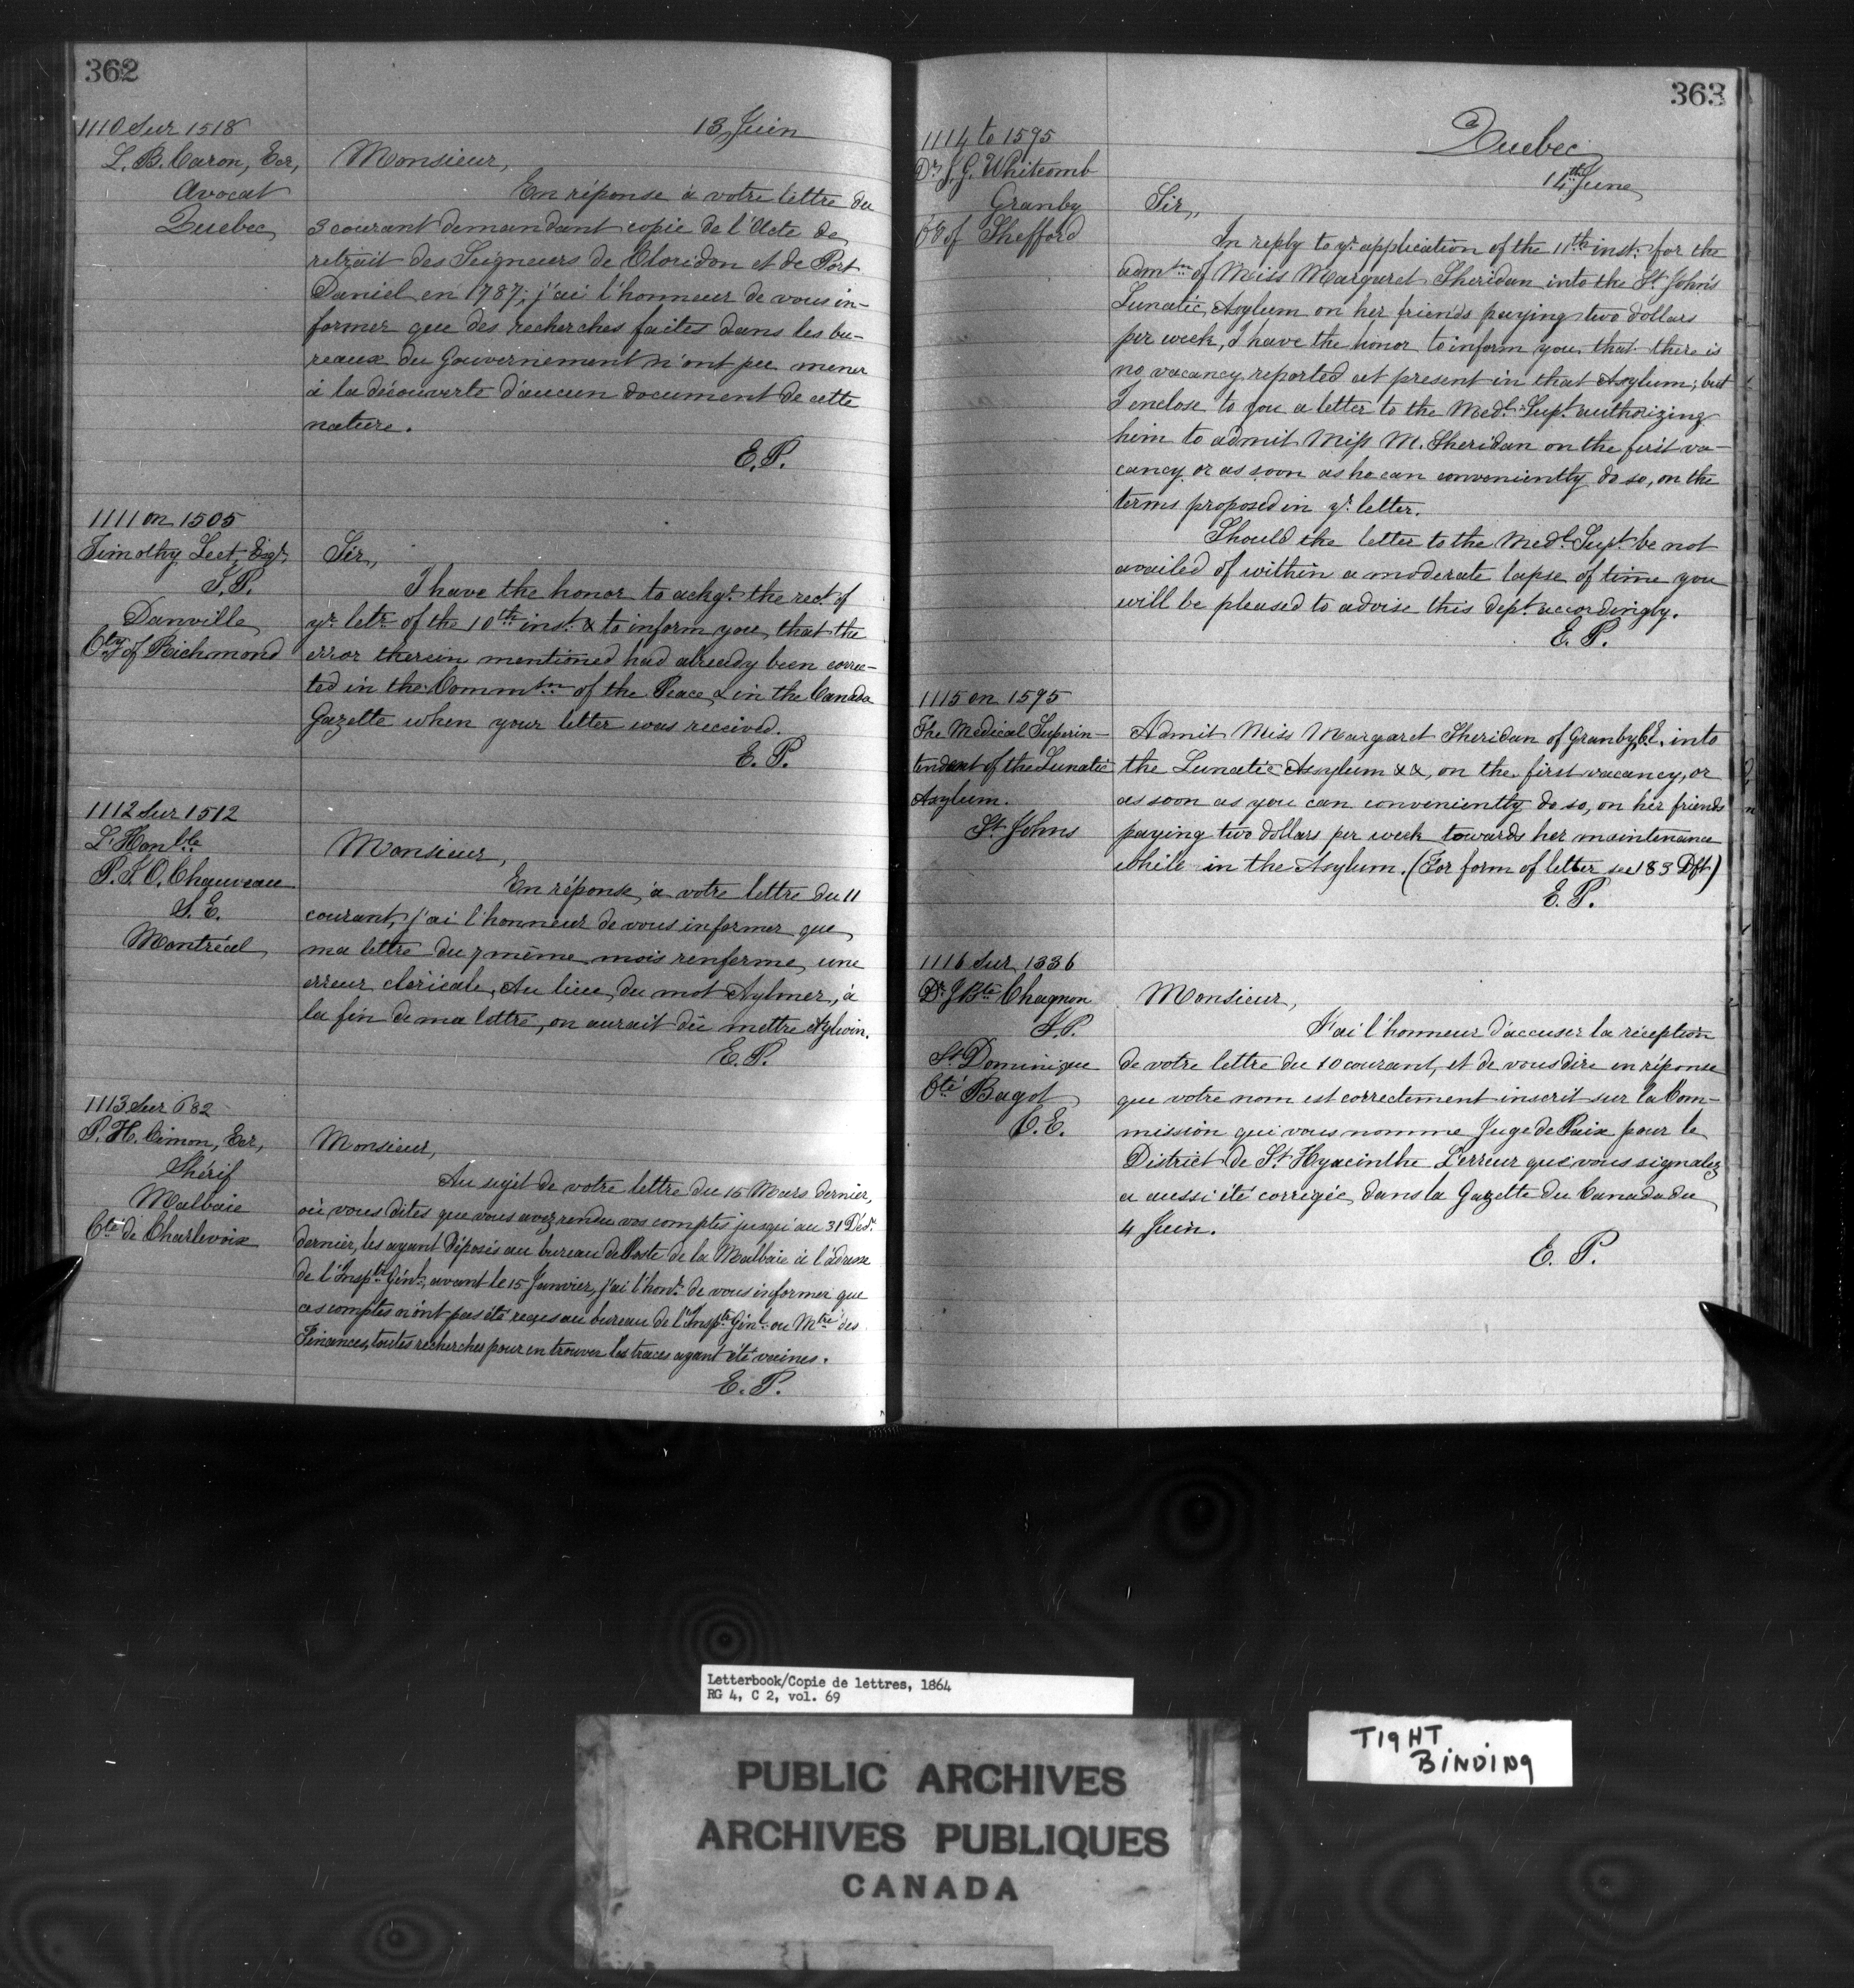 362
13 Juin
1110 Sur 1518
L. B. Caron, Ecr,
Avocat
Quebec
Monsieur,
En réponse à votre lettre du
3 courant demandant copie de l'Acte de
retrait des Seigneurs de Cloridon et de Port
Daniel en 1787, j'ai l'honneur de vous in-
former que des recherches faites dans les bu-
reaux du Gouvernement n'ont pu mener
à la découverte d'aucun document de cette
nature.
E. P.
1111 on 1505
Timothy Leet, Esqr,
J. P.
Danville
Cty of Richmond
Sir,
I have the honor to ackge. the rect. of
yr letr of the 10th inst. & to inform you, that the
error therein mentioned had already been correc-
ted in the Commsn of the Peace & in the Canada
Gazette when your letter was received.
E. P.
1112 Sur 1512
L'Honble
P. J. O. Chauveau
S. E.
Montréal
Monsieur,
En réponse à votre lettre du 11
courant, j'ai l'honneur de vous informer que
ma lettre du 7 même mois renferme une
erreur cléricale. Au lieu du mot Aylmer, à
la fin de ma lettre, on aurait dû mettre Aylwin.
E. P.
1113 Sur 682
P. H. Cimon, Ecr,
Shérif
Malbaie
Cté de Charlevoix
Monsieur,
Au sujet de votre lettre du 15 Mars dernier,
où vous dites que vous avez rendu vos comptes jusqu'au 31 Décr.
dernier, les ayant déposés au bureau de Poste de la Malbaie à l'adresse
de l'Inspr Génl, avant le 15 Janvier, j'ai l'honr. de vous informer que
ces comptes n'ont pas été reçus au bureau de l'Inspr Génl. ou Mtre des
Finances, toutes recherches pour en trouver les traces ayant été vaines.
E. P.
363
Quebec
14th June
1114 to 1595
Dr. J. G. Whitcomb
Granby
Co of Shefford
Sir,
In reply to yr. application of the 11th inst. for the
admsn of Miss Margaret Sheridan into the St. John's
Lunatic Asylum on her friends paying two dollars
per week, I have the honor to inform you that there is
no vacancy reported at present in that Asylum; but
I enclose to you a letter to the Medl. Supt. authorizing
him to admit Miss M. Sheridan on the first va-
cancy or as soon as he can conveniently do so, on the
terms proposed in yr. letter.
Should the letter to the Medl. Supt. be not
availed of within a moderate lapse of time you
will be pleased to advise this dept. accordingly.
E. P.
1115 on 1595
The Medical Superin-
tendant of the Lunatic
Asylum.
St. Johns
Admit Miss Margaret Sheridan of Granby C.E. into
the Lunatic Assylum &&, on the first vacancy, or
as soon as you can conveniently do so, on her friends
paying two dollars per week towards her maintenance
while in the Asylum. (For form of letter see 183 Dft)
E. P.
1116 Sur 1336
Dr. J Bte Chagnon
J. P.
St Dominique
Cté Bagot
C. E.
Monsieur,
J'ai l'honneur d'accuser la réception
de votre lettre du 10 courant, et de vous dire en réponse
que votre nom est correctement inscrit sur la Com-
mission qui vous nomme Juge de Paix pour le
District de St. Hyacinthe. L'erreur que vous signalez
a aussi été corrigée dans la Gazette du Canada du
4 Juin.
E. P.
Letterbook/Copie de lettres, 1864
RG 4, C 2, vol. 69
TIGHT
BINDING
PUBLIC ARCHIVES
ARCHIVES PUBLIQUES
CANADA